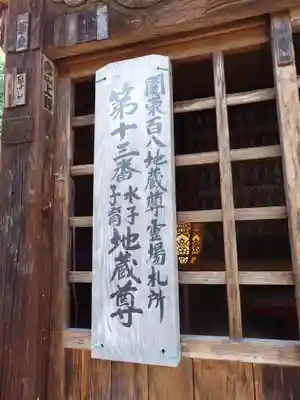 関東百八地蔵尊霊場札所
第十三番水子子育地蔵尊